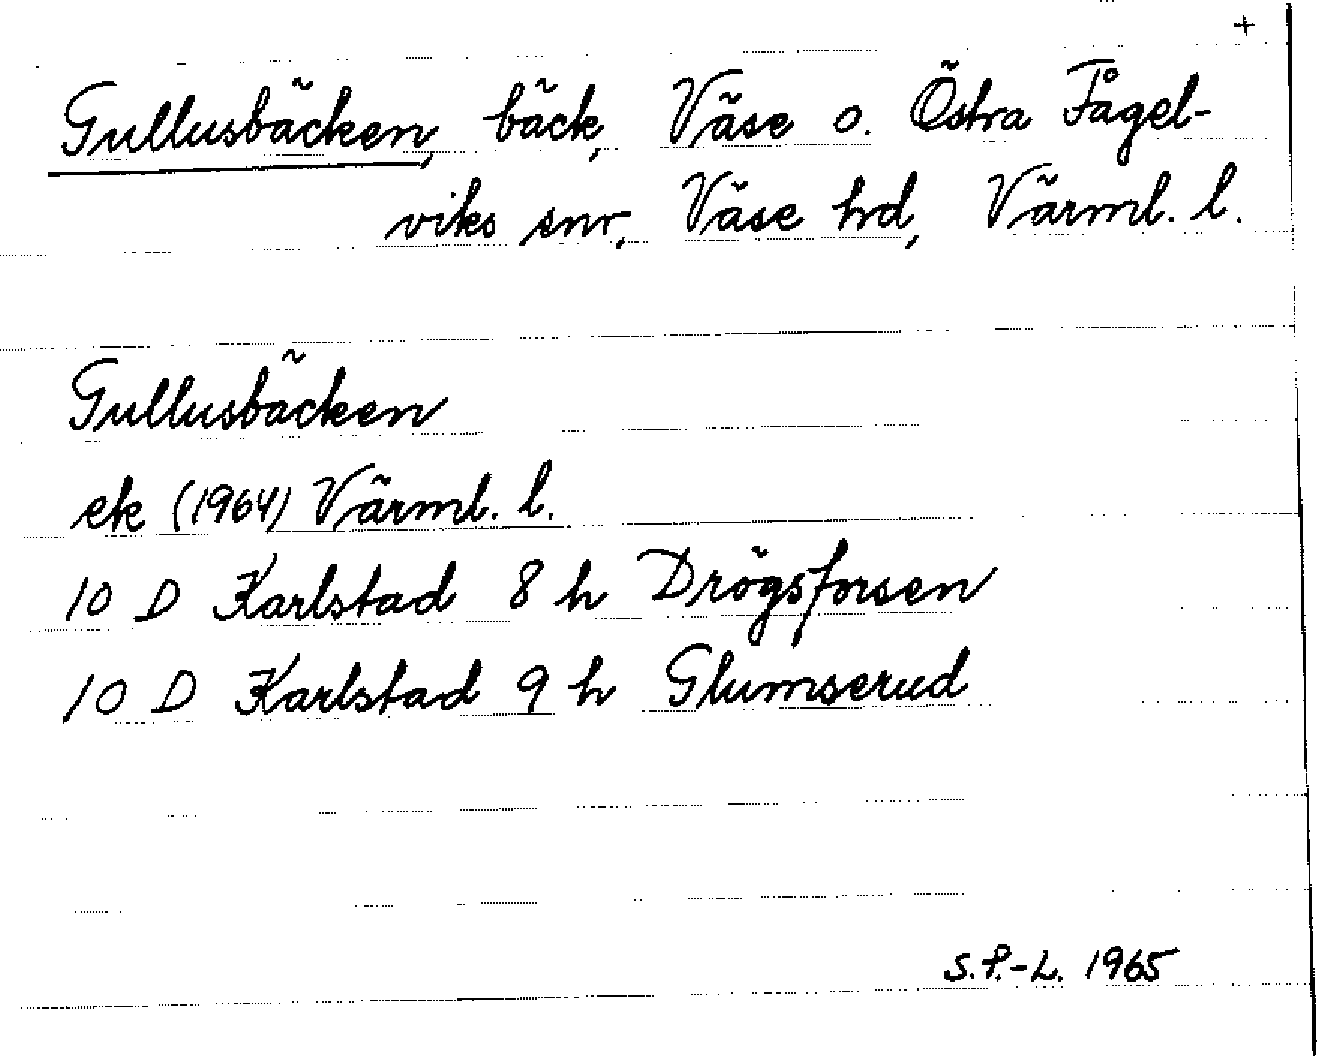 +
Gullusbäcken, bäck, Väse o. Östra Fågel-
viks snr, Väse hd, Värml. l.
Gullusbäcken
ek (1964) Värml. l.
10 D Karlstad 8 h Drögsforsen
10 D Karlstad 9 h Glumserud
S.P.-L. 1965